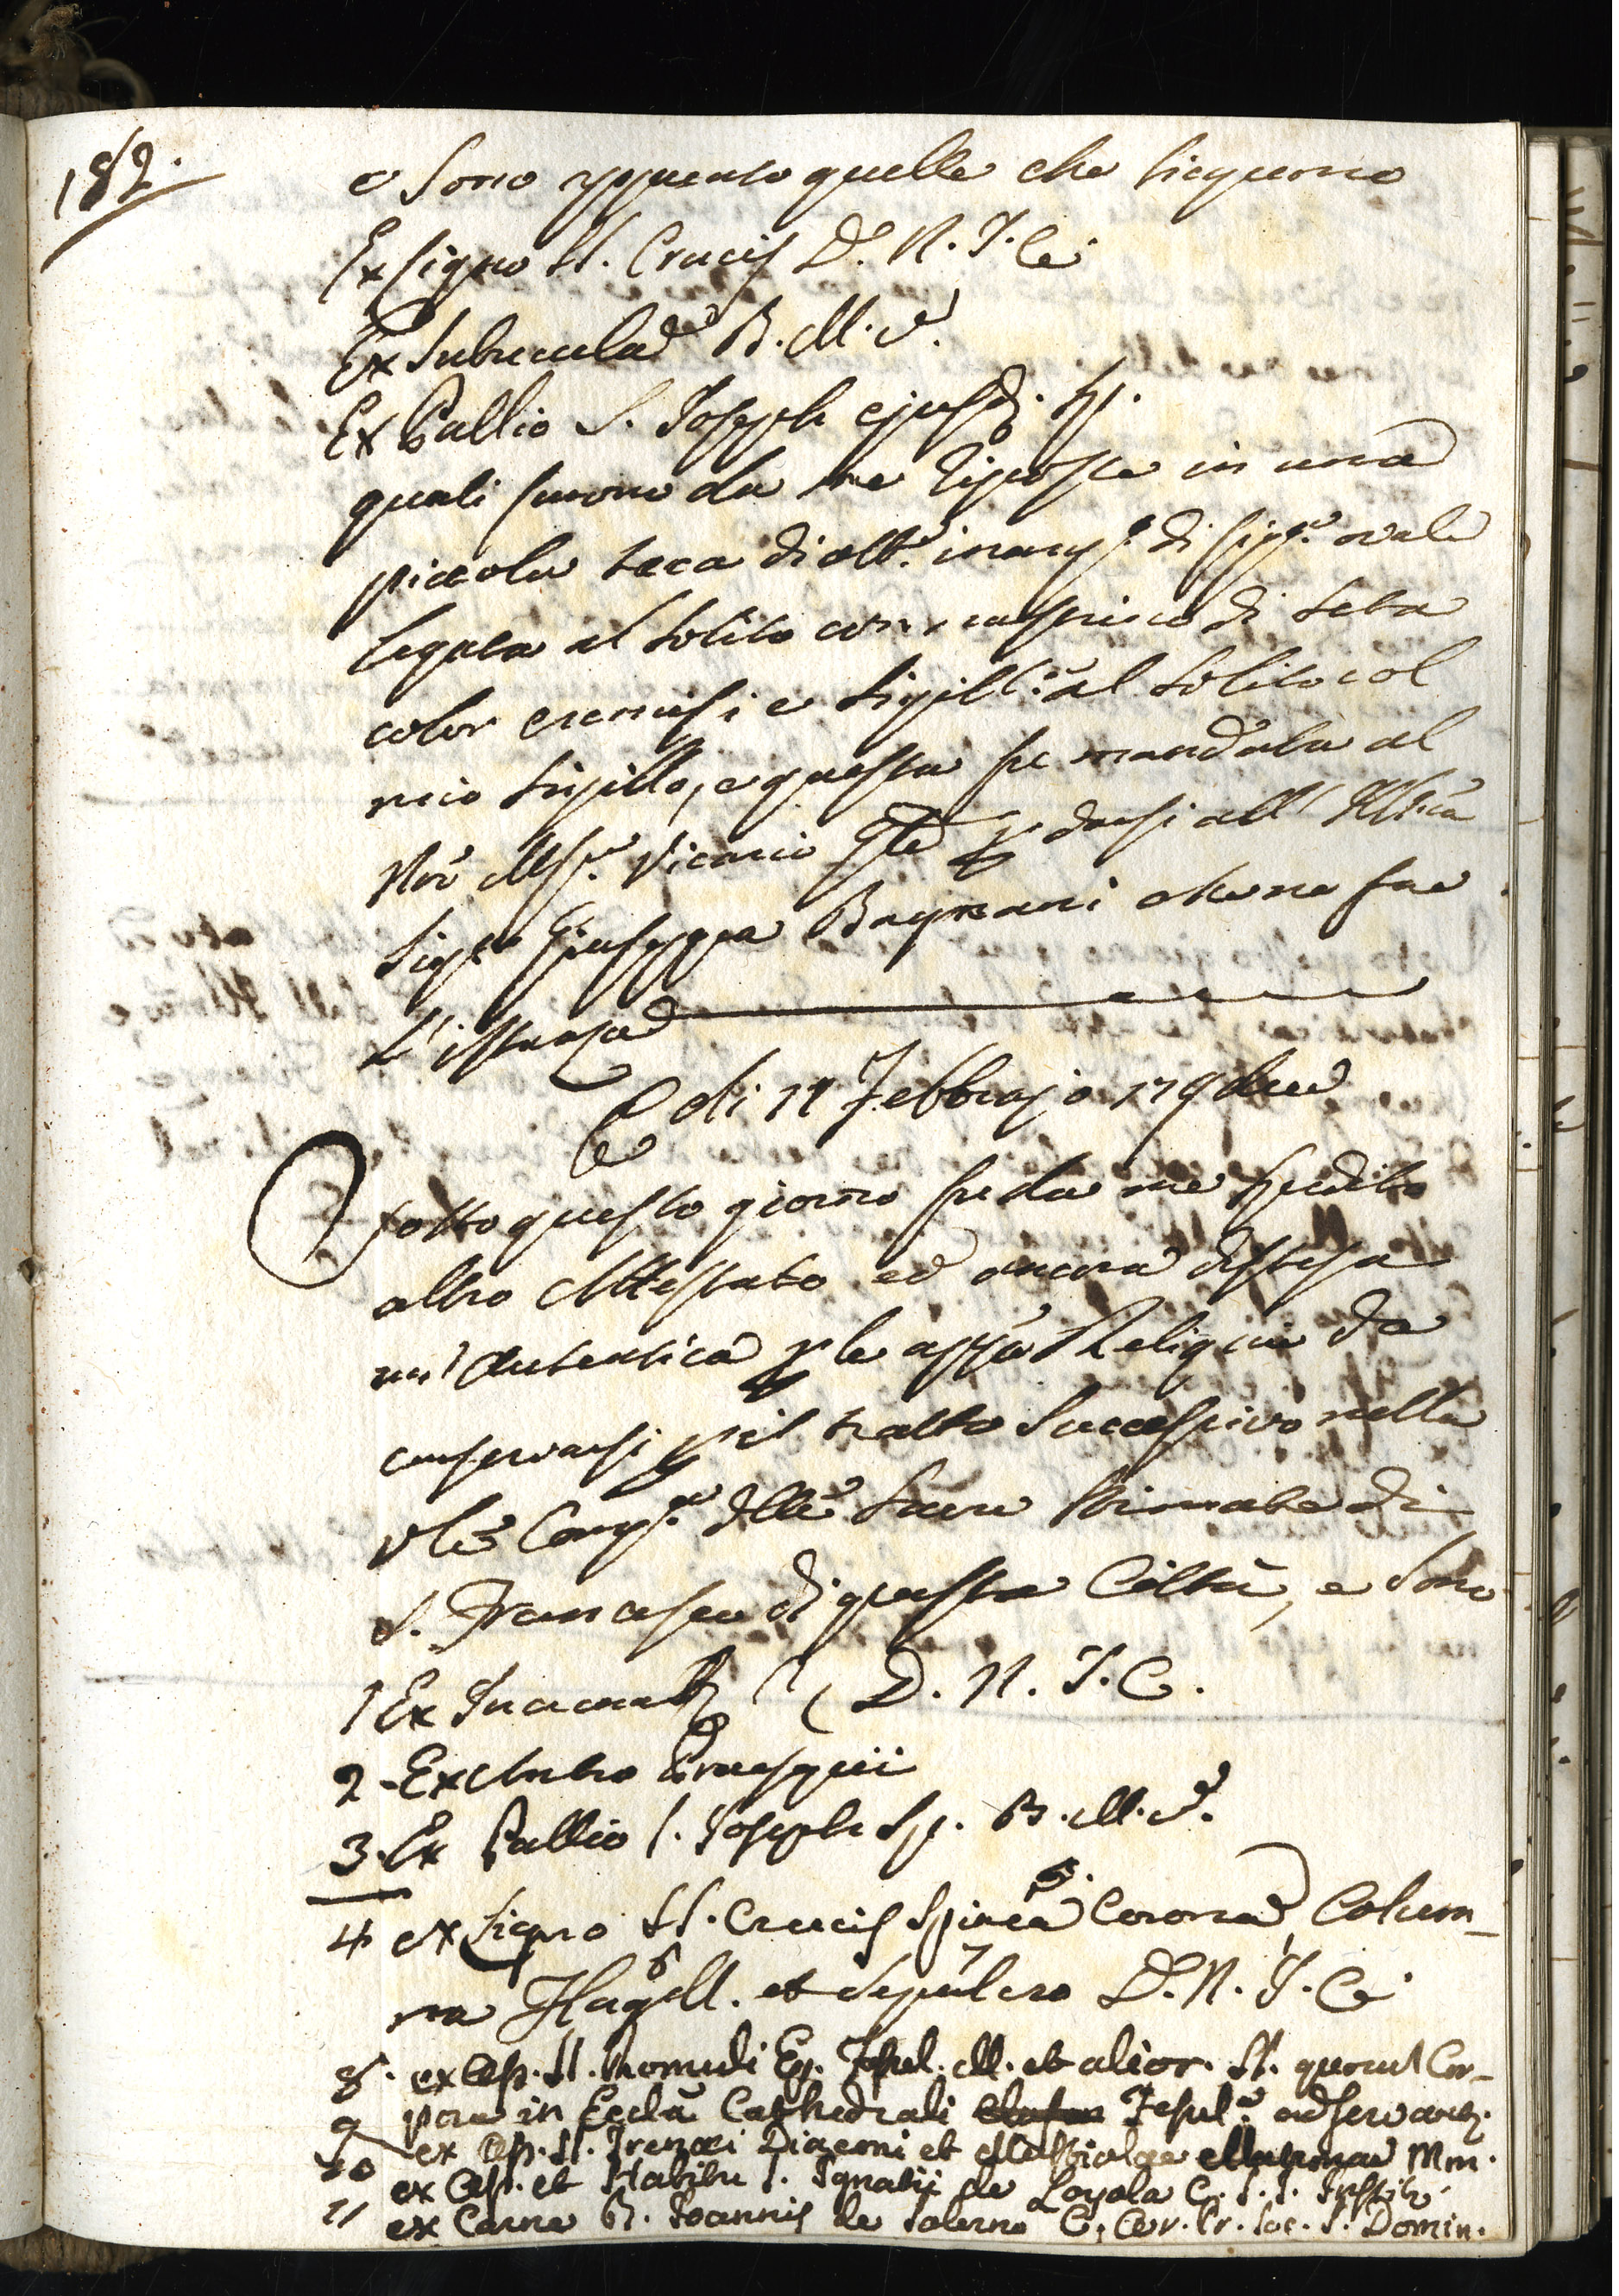 182.
e Sono appunto quelle che sieguono
Ex Ligno SS. Crucis D. N. J. C.
Ex Subucula B. M. V.
Ex Pallio S. Joseph ejusd. Sp.
quali furono da me riposte in una
piccola teca di ott.e inarg.ta di fig.ra ovale
legata al solito con nastrino di seta
color cremisi e sigill.ta al solito col
mio sigillo, e questa fu mandata al
Nro Msr. Vicario Gle p darsi all' Illma
Sig.ra Giuseppa Bagnani che ne fece
L'istanza
E di 11 Febbrajo 179due
Sotto questo giorno fu da me spedito
altro Attestato ed ancora distesa
un' Autentica p le appo Reliquie da
conservarsi p il tratto successivo nella
Vle Comp.a dlle Sacre Stimate di
S. Francesco di questa Città, e Sono
1 Ex D. N. J. C.
2 - Ex Antro Praesepii
3. Ex Pallio S. Joseph Sp. B. M. V.
4 ex Ligno SS. Crucis Spinea Corona, Colum-
na Flagell. et Sepulcro D. N. J. C.
8. ex Oss. SS. Romuli Ep. Fesul. M. et alior. SS. quorum Cor-
9 pora in Eccla Cathedrali Fesul.a adservantr.
10 ex Oss. SS. Irenaei Diaconi et Mustiolae Matronae Mm.
ex Oss. et Habitu S. Ignatii de Loyola C. S. J. Instit.
11 ex Carne B. Joannis de Salerno C. Or. Pr. Soc. S. Domin.